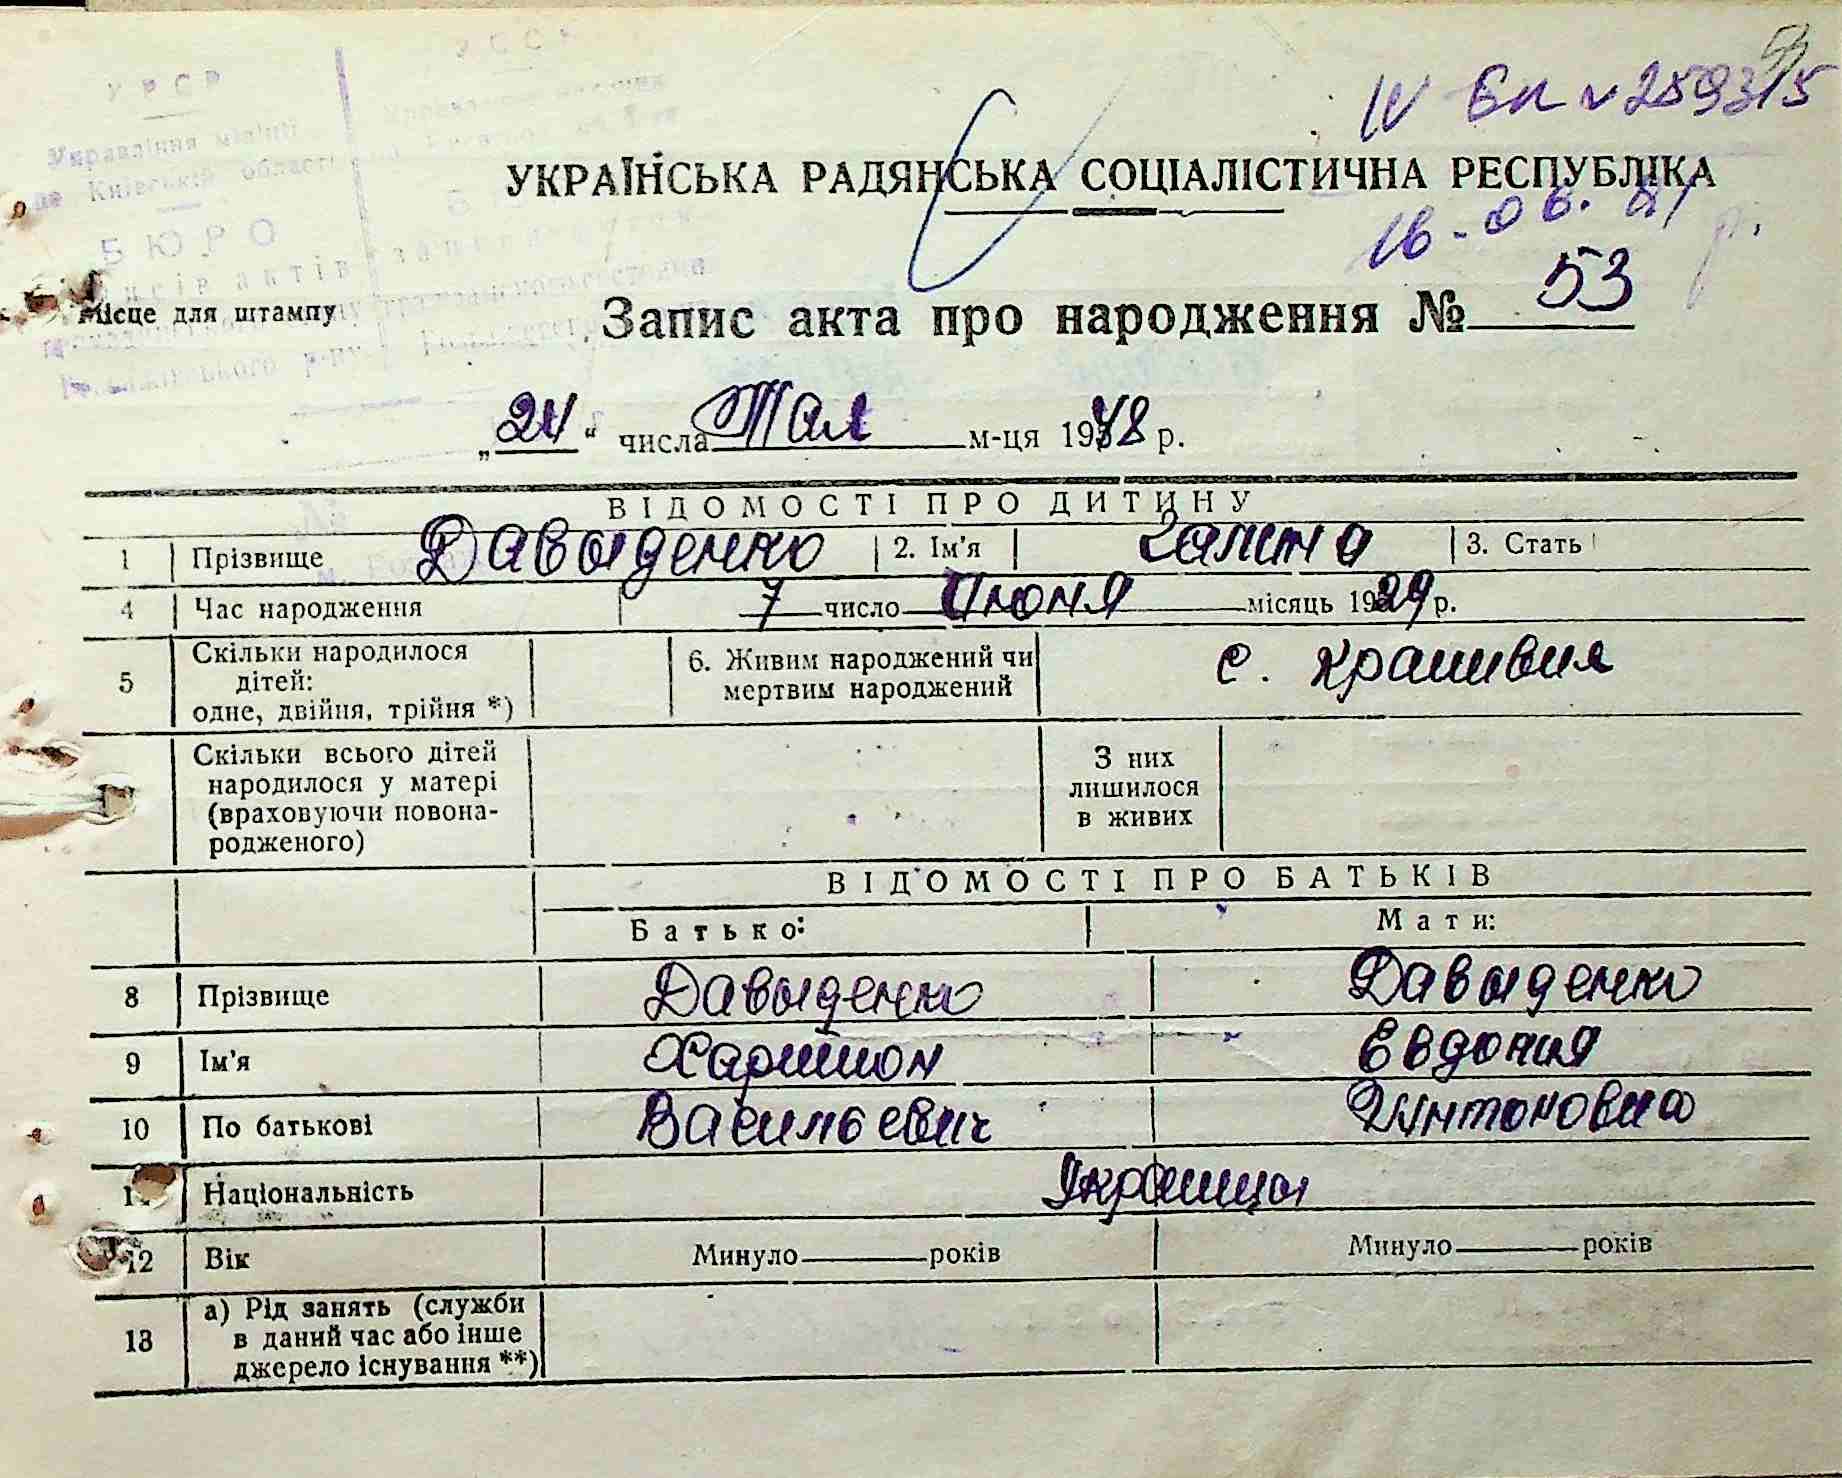 У Р С Р
У С С Р
Управління міліції
по Київській області
Б Ю Р О
ІV БК № 259315
УКРАЇНСЬКА РАДЯНСЬКА СОЦІАЛІСТИЧНА РЕСПУБЛІКА
16-06.81 р.
Місце для штампу
Запис акта про народження № 53
„24" числа Мая м-ця 1948 р.
ВІДОМОСТІ ПРО ДИТИНУ
1 Прізвище Давыденко 2. Ім'я Галина 3. Стать
4 Час народження 7 число Июня місяць 1929 р.
5 Скільки народилося дітей: одне, двійня, трійня *) 6. Живим народжений чи мертвим народжений с. Крапивня
Скільки всього дітей народилося у матері (враховуючи новонародженого) З них лишилося в живих
ВІДОМОСТІ ПРО БАТЬКІВ
Батько: Мати:
8 Прізвище Давыденко Давыденко
9 Ім'я Харитон Евдокия
10 По батькові Васильевич Антоновна
11 Національність Украинцы
12 Вік Минуло років Минуло років
13 а) Рід занять (служби в даний час або інше джерело існування **)